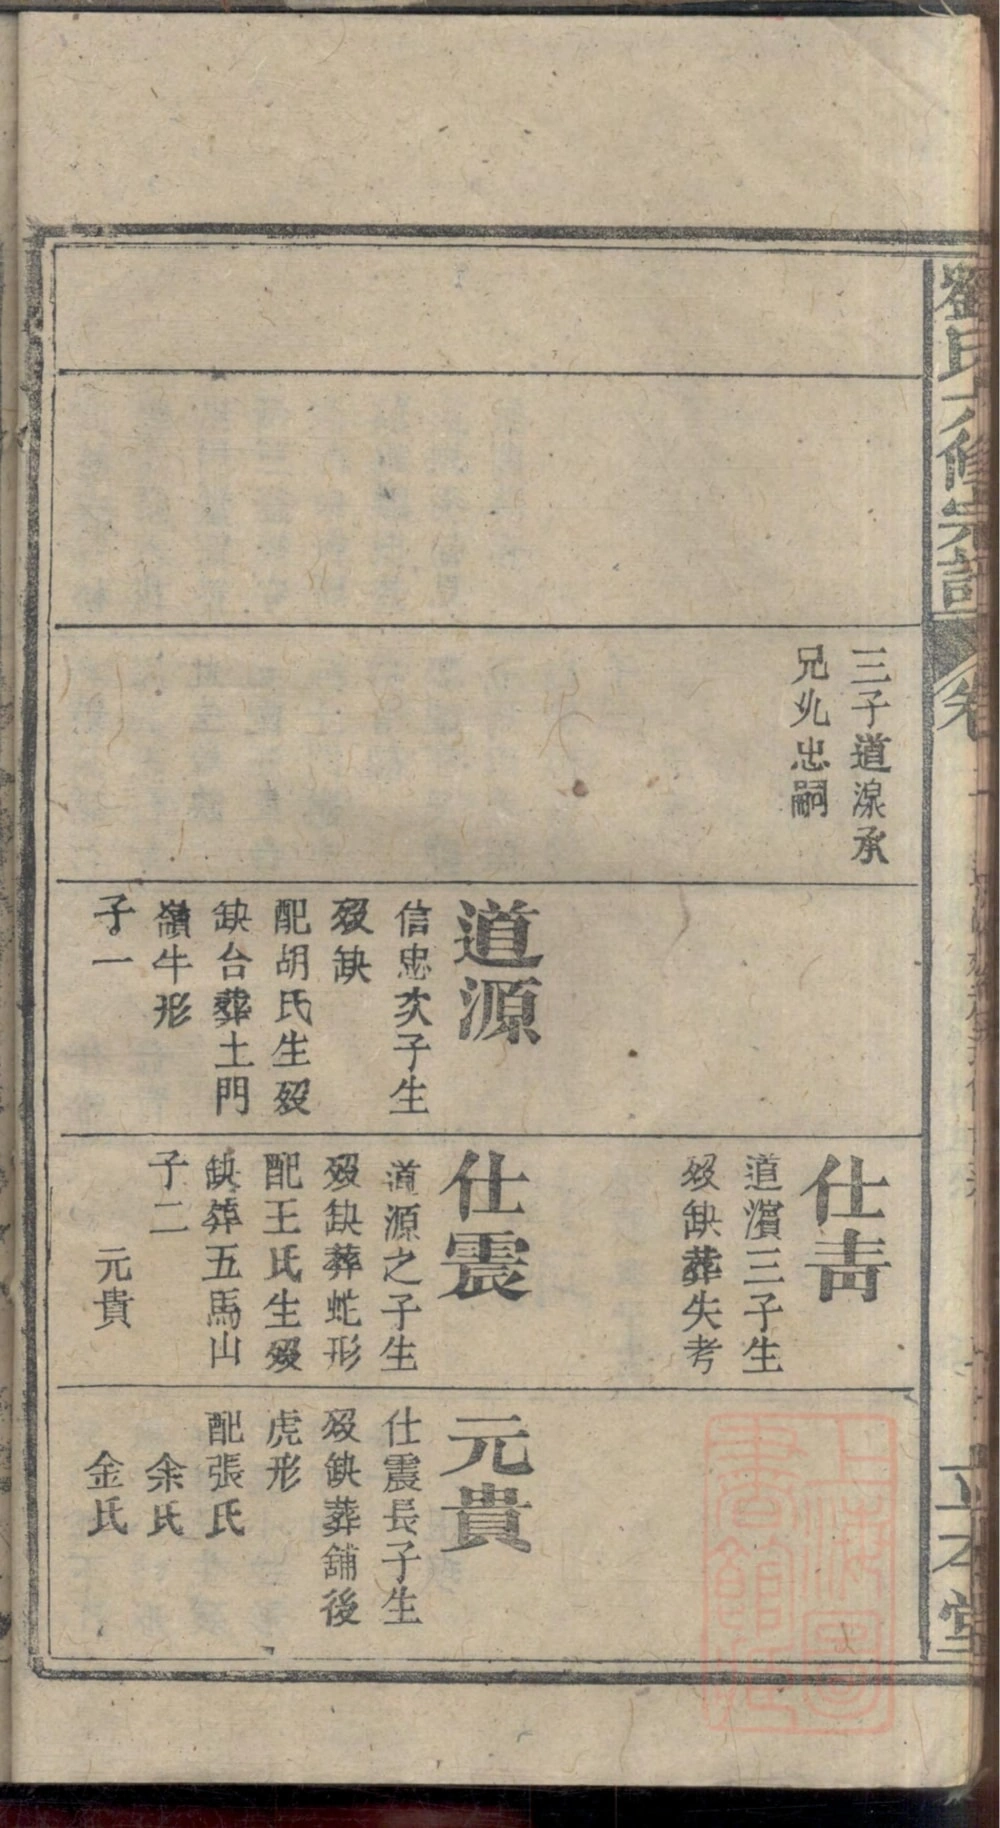 劉氏六修宗譜
卷
立本堂
三子道湶承
兄兆忠嗣
道源
信忠次子生
殁缺
配胡氏生殁
缺台葬土門
嶺牛形
子一
仕青
道濱三子生
殁缺葬失考
仕震
道源之子生
殁缺葬虵形
配王氏生殁
缺葬五馬山
子二
元貴
元貴
仕震長子生
殁缺葬舖後
虎形
配張氏
余氏
金氏